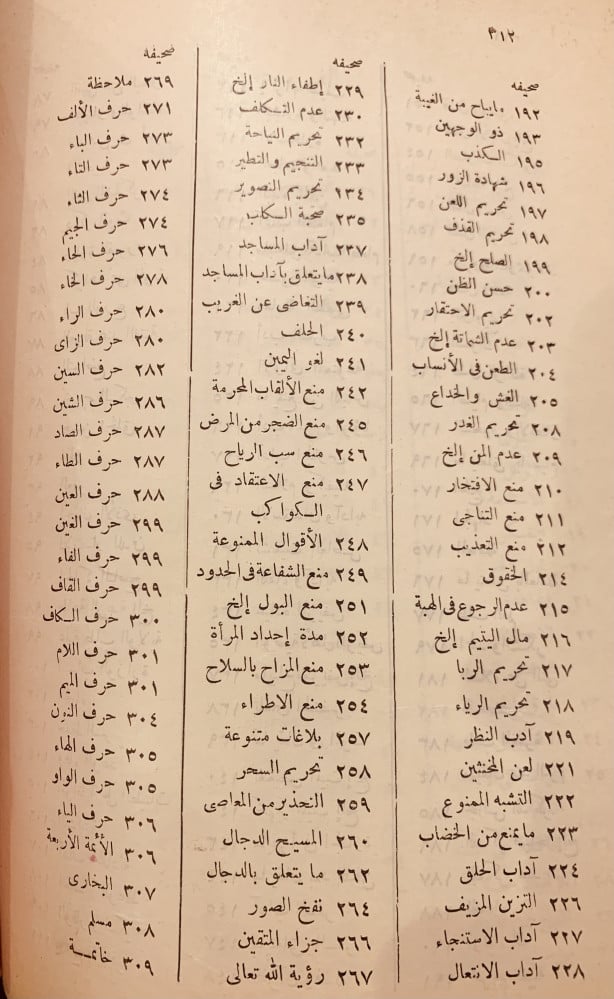 ٣١٢
صحيفه
١٩٢ مايباح من الغيبة
١٩٣ ذو الوجهين
١٩٥ الكذب
١٩٦ شهادة الزور
١٩٧ تحريم اللعن
١٩٨ تحريم القذف
١٩٩ الصلح إلخ
٢٠٠ حسن الظن
٢٠٢ تحريم الاحتقار
٢٠٣ عدم الشماتة إلخ
٢٠٤ الطعن فى الأنساب
٢٠٥ الغش والخداع
٢٠٨ تحريم الغدر
٢٠٩ عدم المن إلخ
٢١٠ منع الافتخار
٢١١ منع التناجى
٢١٢ منع التعذيب
٢١٤ الحقوق
٢١٥ عدم الرجوع فى الهبة
٢١٦ مال اليتيم إلخ
٢١٧ تحريم الربا
٢١٨ تحريم الرياء
٢١٩ آدب النظر
٢٢١ لعن المخنثين
٢٢٢ التشبه الممنوع
٢٢٣ مايمنع من الخضاب
٢٢٤ آداب الحلق
٢٢٦ التزين المزيف
٢٢٧ آداب الاستنجاء
٢٢٨ آداب الانتعال
صحيفه
٢٢٩ إطفاء النار إلخ
٢٣٠ عدم التكلف
٢٣٢ تحريم النياحة
٢٣٣ التنجيم والتطير
١٣٤ تحريم التصوير
٢٣٥ صحبة الكلب
٢٣٧ آداب المساجد
٢٣٨ مايتعلق بآداب المساجد
٢٣٩ التغاضى عن الغريب
٢٤٠ الحلف
٢٤١ لغو اليمين
٢٤٢ منع الألقاب المحرمة
٢٤٥ منع الضجر من المرض
٢٤٦ منع سب الرياح
٢٤٧ منع الاعتقاد فى
الكواكب
٢٤٨ الأقوال الممنوعة
٢٤٩ منع الشفاعة فى الحدود
٢٥١ منع البول إلخ
٢٥٢ مدة إحداد المرأة
٢٥٣ منع المزاح بالسلاح
٢٥٤ منع الاطراء
٢٥٧ بلاغات متنوعة
٢٥٨ تحريم السحر
٢٥٩ التحذير من المعاصى
٢٦٠ المسيح الدجال
٢٦٢ ما يتعلق بالدجال
٢٦٤ نفخ الصور
٢٦٦ جزاء المتقين
٢٦٧ رؤية الله تعالى
صحيفه
٢٦٩ ملاحظة
٢٧١ حرف الألف
٢٧٣ حرف الباء
٢٧٣ حرف التاء
٢٧٤ حرف الثاء
٢٧٤ حرف الجيم
٢٧٦ حرف الحاء
٢٧٨ حرف الخاء
٢٨٠ حرف الراء
٢٨٠ حرف الزاى
٢٨٢ حرف السين
٢٨٦ حرف الشين
٢٨٧ حرف الصاد
٢٨٧ حرف الطاء
٢٨٨ حرف العين
٢٩٩ حرف الغين
٢٩٩ حرف الفاء
٢٩٩ حرف القاف
٣٠٠ حرف الكاف
٣٠١ حرف اللام
٣٠١ حرف الميم
٣٠٤ حرف النون
٣٠٥ حرف الهاء
٣٠٥ حرف الواو
٣٠٦ حرف الياء
٣٠٦ الأئمة الأربعة
٣٠٧ البخارى
٣٠٨ مسلم
٣٠٩ خاتمة